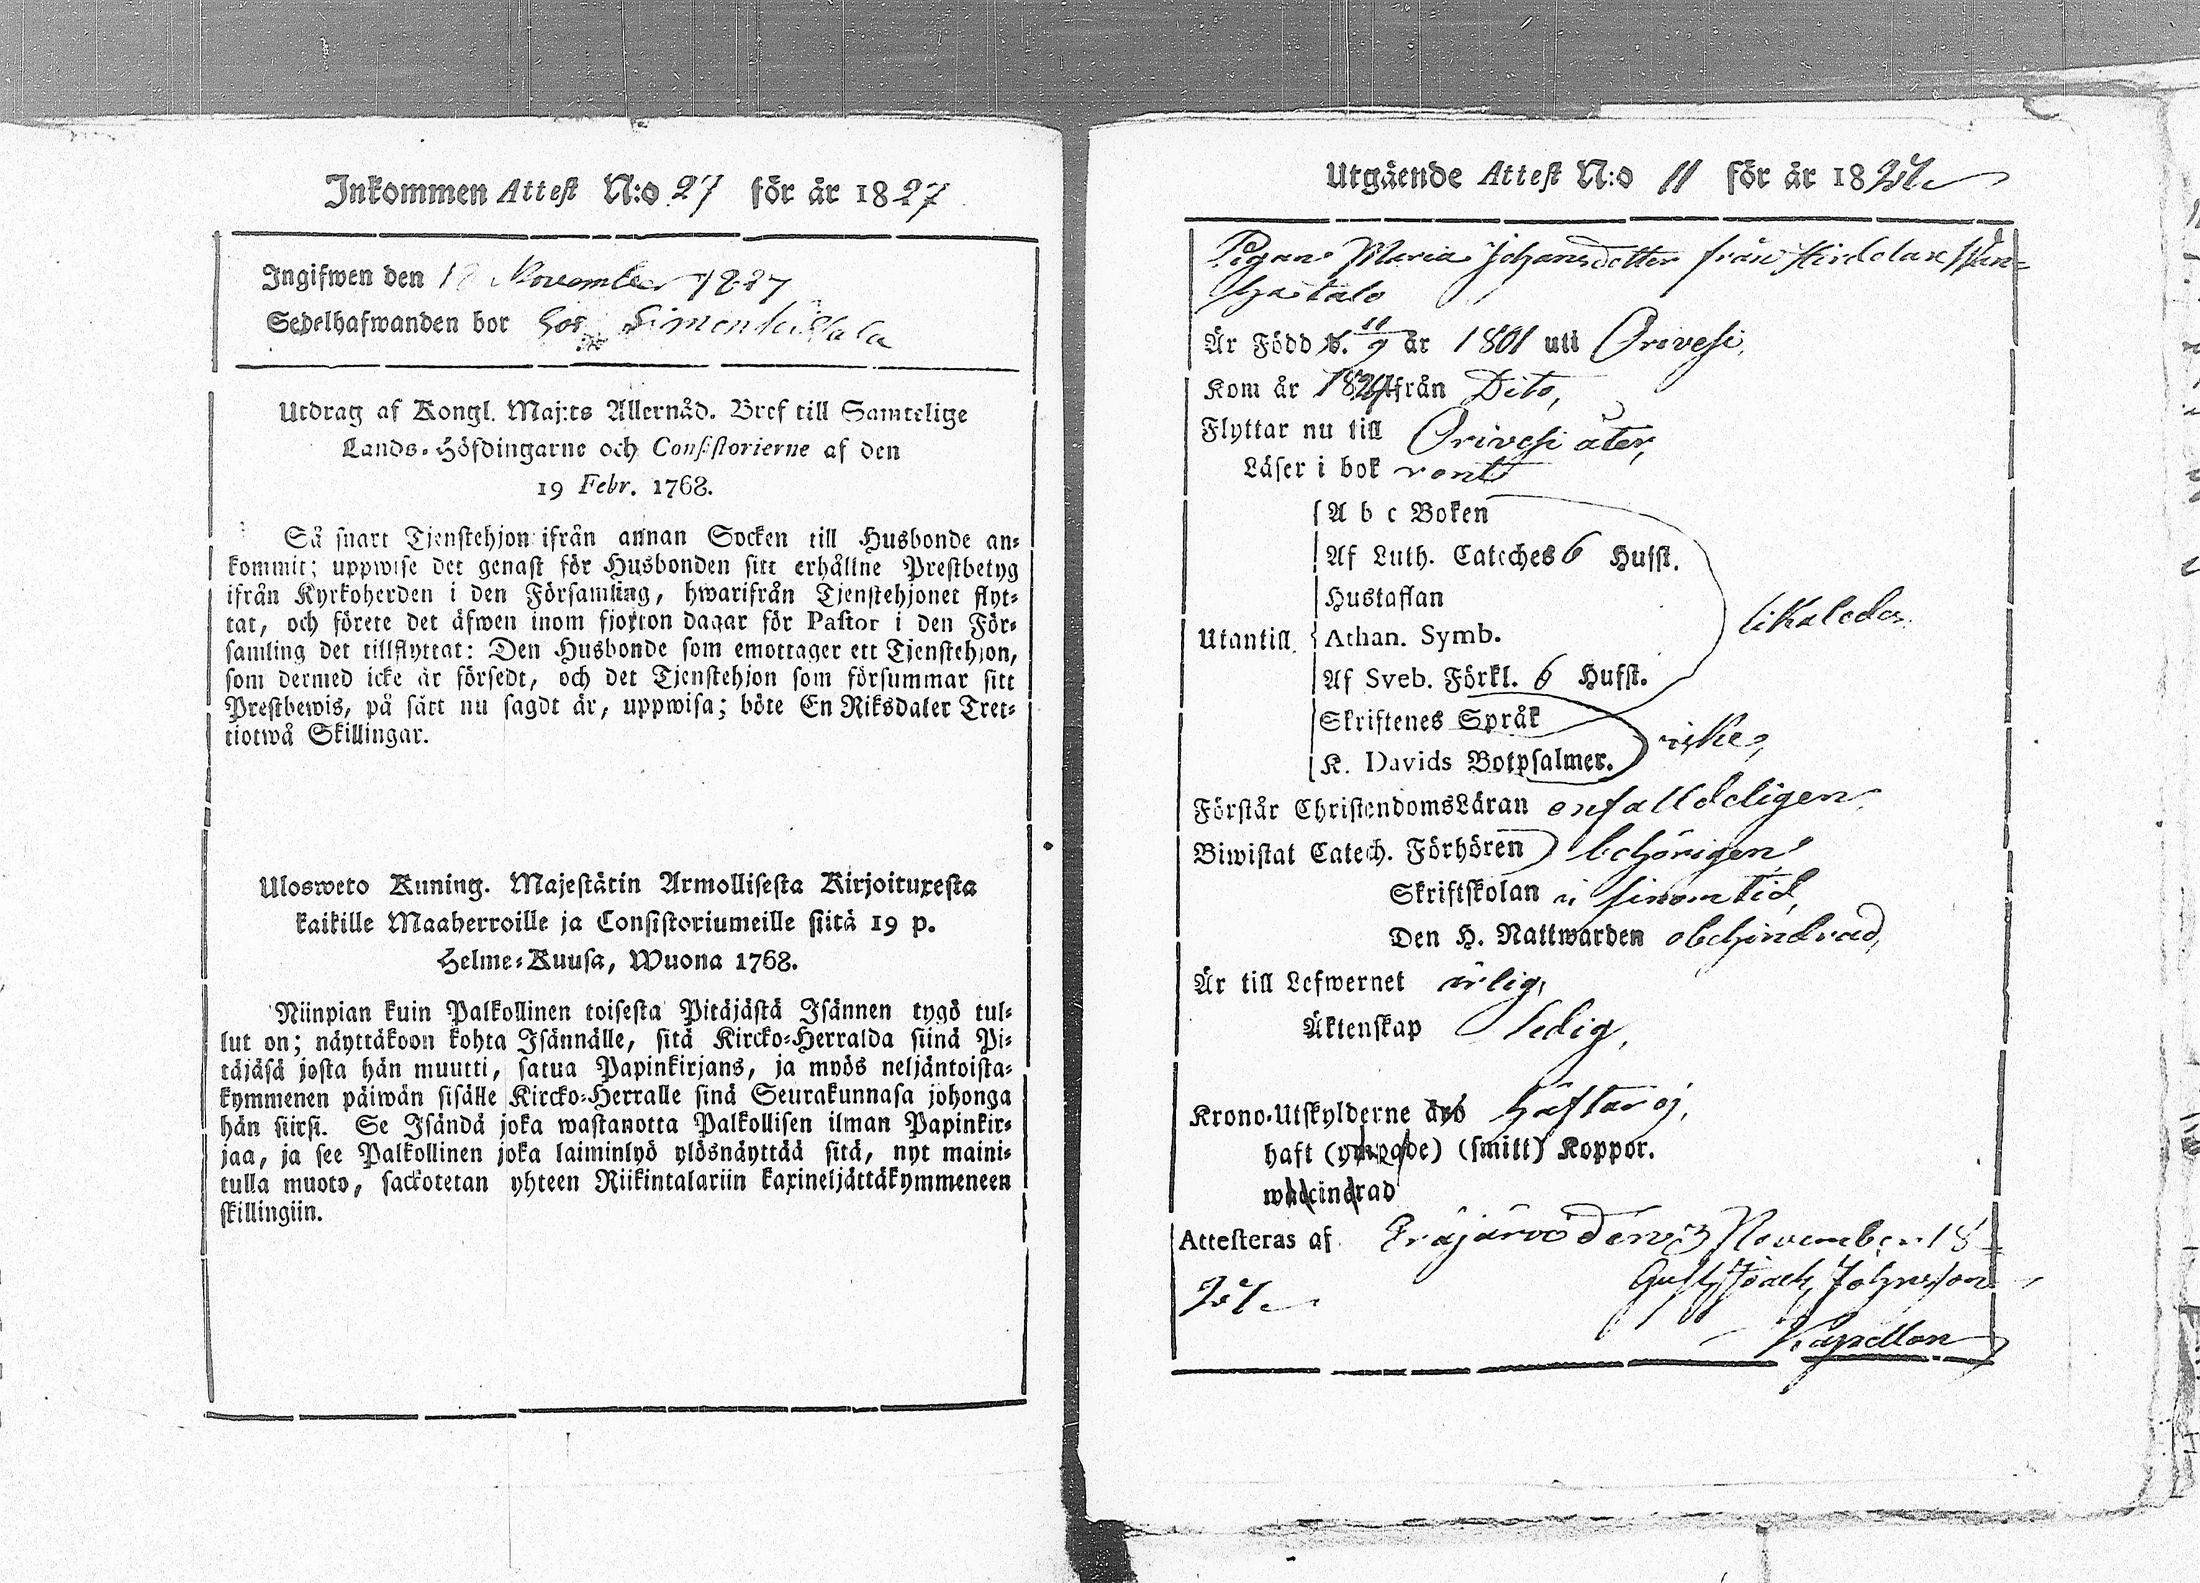 Inkommen Attest N:o 27 för år 1827
Ingifwen den November 1827
Sedelhafwanden bor hos Simenkeiskala
Utdrag af Kongl. Maj:ts Allernåd. Bref till Samtelige
Lands-Höfdingarne och Consistorierne af den
19 Febr. 1768.
Så snart Tjenstehjon ifrån annan Socken till Husbonde an-
kommit; uppwise det genast för Husbonden sitt erhållne Prestbetyg
ifrån Kyrkoherden i den Församling, hwarifrån Tjenstehjonet flyt-
tat, och förete det äfwen inom fjorton dagar för Pastor i den För-
samling det tillflyttat: Den Husbonde som emottager ett Tjenstehjon,
som dermed icke är försedt, och det Tjenstehjon som försummar sitt
Prestbewis, på sätt nu sagdt är, uppwisa; böte En Riksdaler Tret-
tiotwå Skillingar.
Ulosweto Kuning. Majestätin Armollisesta Kirjoituxesta
kaikille Maaherroille ja Consistoriumeille siitä 19 p.
Helme-Kuusa, Wuona 1768.
Niinpian kuin Palkollinen toisesta Pitäjästä Isännen tygö tul-
lut on; näyttäkoon kohta Isännälle, sitä Kircko-Herralda siinä Pi-
täjäsä josta hän muutti, satua Papinkirjans, ja myös neljäntoista-
kymmenen päiwän sisälle Kircko-Herralle sinä Seurakunnasa johonga
hän siirsi. Se Isändä joka wastanotta Palkollisen ilman Papinkir-
jaa, ja see Palkollinen joka laiminlyö ylösnäyttää sitä, nyt maini-
tulla muoto, sackotetan yhteen Riikintalariin kaxineljättäkymmeneen
skillingiin.
Utgående Attest N:o 11 för år 1827
Pigan Maria Johansdotter från
Är Född d. 11/9 år 1801 uti Orivesi,
Kom år 1824 från Dito,
Flyttar nu till Orivesi åter,
Läser i bok rent
A b c Boken
Af Luth. Cateches 6 Hufst.
Hustaflan
Utantill Athan. Symb. likaledes
Af Sveb. Förkl. 6 Hufst.
Skriftenes Språk
K. Davids Botpsalmer. icke,
Förstår ChristendomsLäran enfalldeligen
Biwistat Catech. Förhören behörigen
Skriftskolan i sinom tid,
Den H. Nattwarden obehindrad,
Är till Lefwernet ärlig,
Äktenskap ledig,
Krono-Utskylderne häftar ej,
haft (ympade) (smitt) Koppor.
waccinerad
Attesteras af Eräjärvi den 3 November 18
27
Gust. Joach. Johnsson
Kapellan